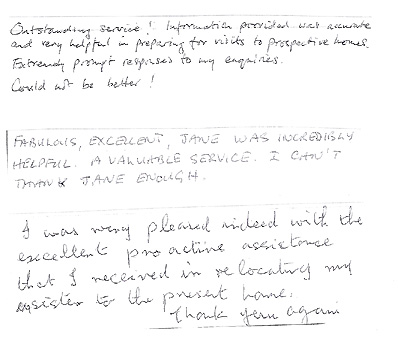 Outstanding service! Information provided was accurate
and very helpful in preparing for visits to prospective homes.
Extremely prompt responses to my enquires.
Could not be better!
FABULOUS, EXCELLENT, JANE WAS INCREDIBLY
HELPFUL. A VALUABLE SERVICE. I CAN'T
THANK JANE ENOUGH.
I was very pleased indeed with the
excellent proactive assistance
that I received in relocating my
sister to the present home.
Thank you again